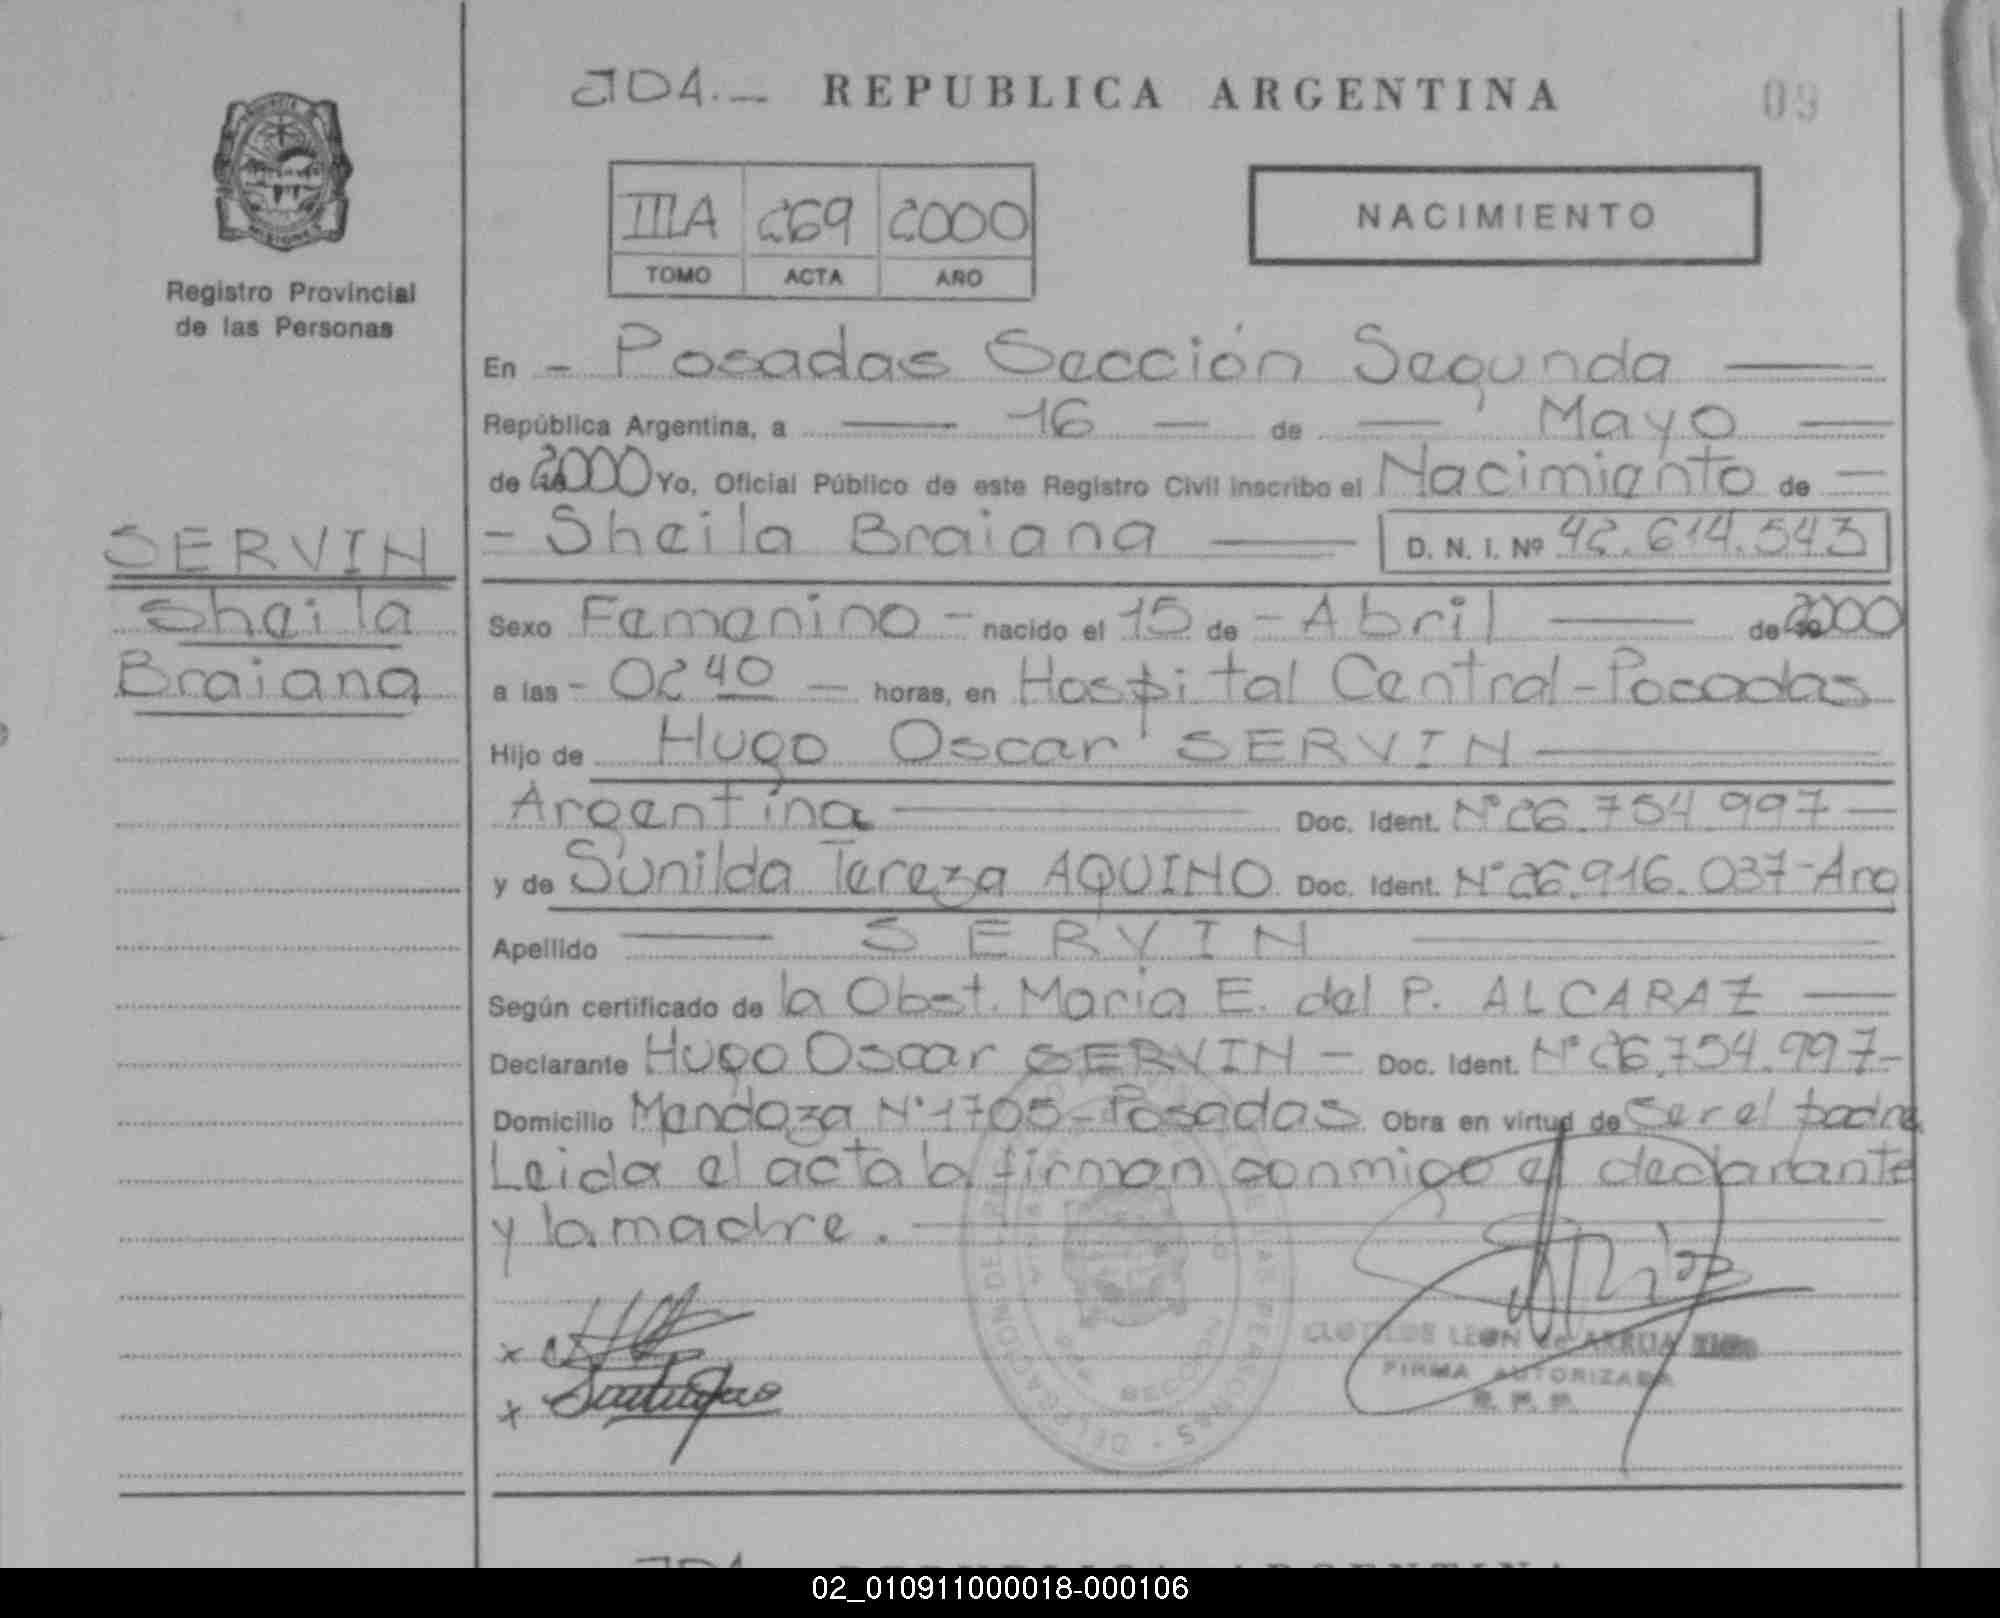 JDA.— REPUBLICA ARGENTINA 09
IIIA 269 2000
TOMO ACTA AÑO
NACIMIENTO
Registro Provincial
de las Personas
En - Posadas Sección Segunda
República Argentina, a — 16 — de — Mayo —
de 2000 Yo, Oficial Público de este Registro Civil inscribo el Nacimiento de —
- Sheila Braiana — D. N. I. Nº 42.614.543
SERVIN
Sheila
Braiana
Sexo Femenino - nacido el 15 de - Abril — de 2000
a las - 02 40 — horas, en Hospital Central - Posadas
Hijo de Hugo Oscar SERVIN —
Argentina — Doc. Ident. N° 26.754.997 —
y de Sunilda Tereza AQUINO Doc. Ident. N° 26.916.037 - Arg
Apellido — SERVIN —
Según certificado de la Obst. Maria E. del P. ALCARAZ —
Declarante Hugo Oscar SERVIN — Doc. Ident. N° 26.754.997 -
Domicilio Mendoza N° 1705 - Posadas Obra en virtud de Ser el padre
Leida el acta la firman conmigo el declarante
y la madre. —
x
x
CLOTILDE LEON de ARRUA
FIRMA AUTORIZADA
R. P. P.
REPUBLICA ARGENTINA
02_010911000018-000106